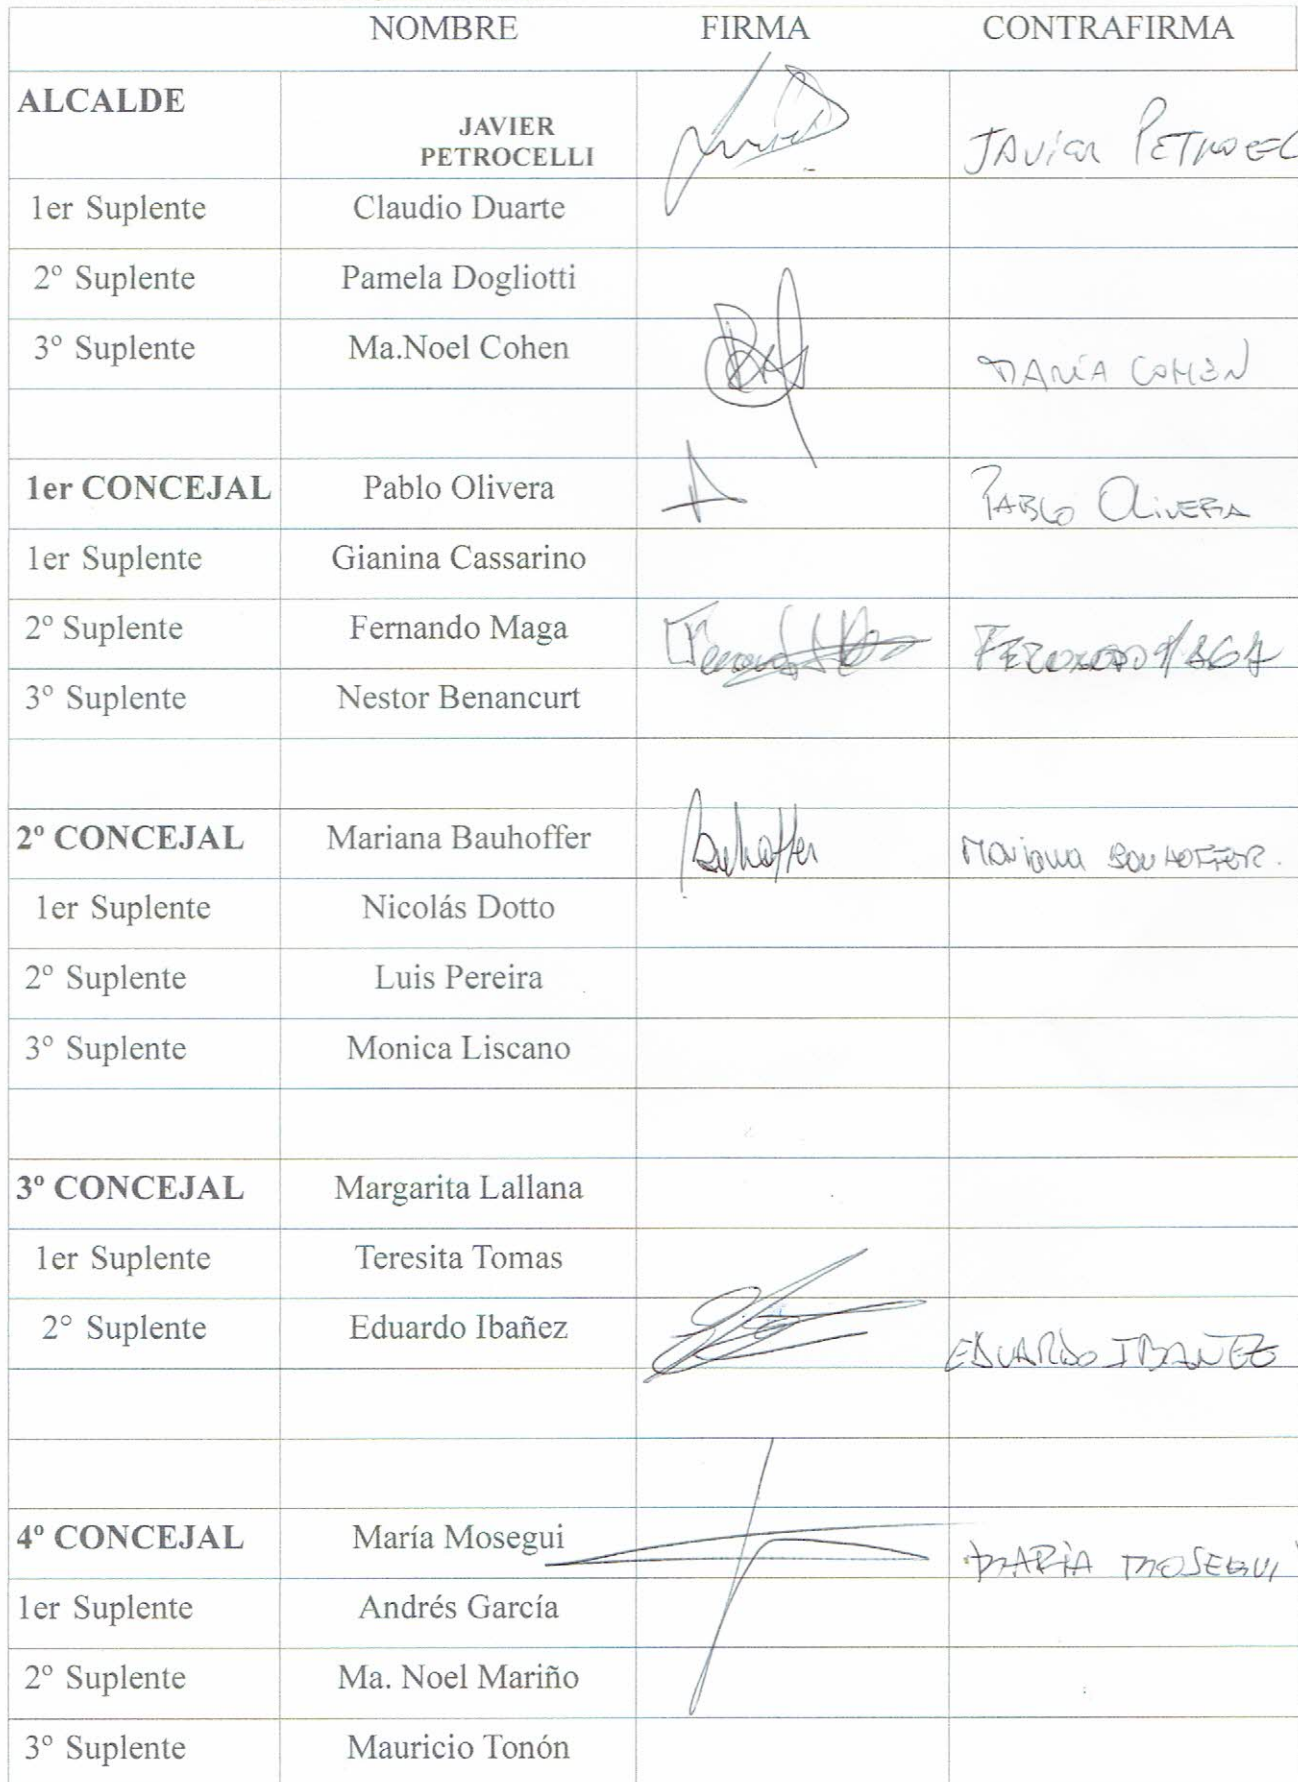 NOMBRE FIRMA CONTRAFIRMA
ALCALDE
JAVIER
PETROCELLI
JAVIER PETROCEL
1er Suplente Claudio Duarte
2º Suplente Pamela Dogliotti
3º Suplente Ma.Noel Cohen MARÍA COHEN
1er CONCEJAL Pablo Olivera PABLO OLIVERA
1er Suplente Gianina Cassarino
2º Suplente Fernando Maga FERNANDO MAGA
3º Suplente Nestor Benancurt
2º CONCEJAL Mariana Bauhoffer Bauhoffer Mariana BAUHOFFER.
1er Suplente Nicolás Dotto
2º Suplente Luis Pereira
3º Suplente Monica Liscano
3º CONCEJAL Margarita Lallana
1er Suplente Teresita Tomas
2° Suplente Eduardo Ibañez EDUARDO IBAÑEZ
4º CONCEJAL María Mosegui MARÍA MOSEGUI
1er Suplente Andrés García
2º Suplente Ma. Noel Mariño
3º Suplente Mauricio Tonón